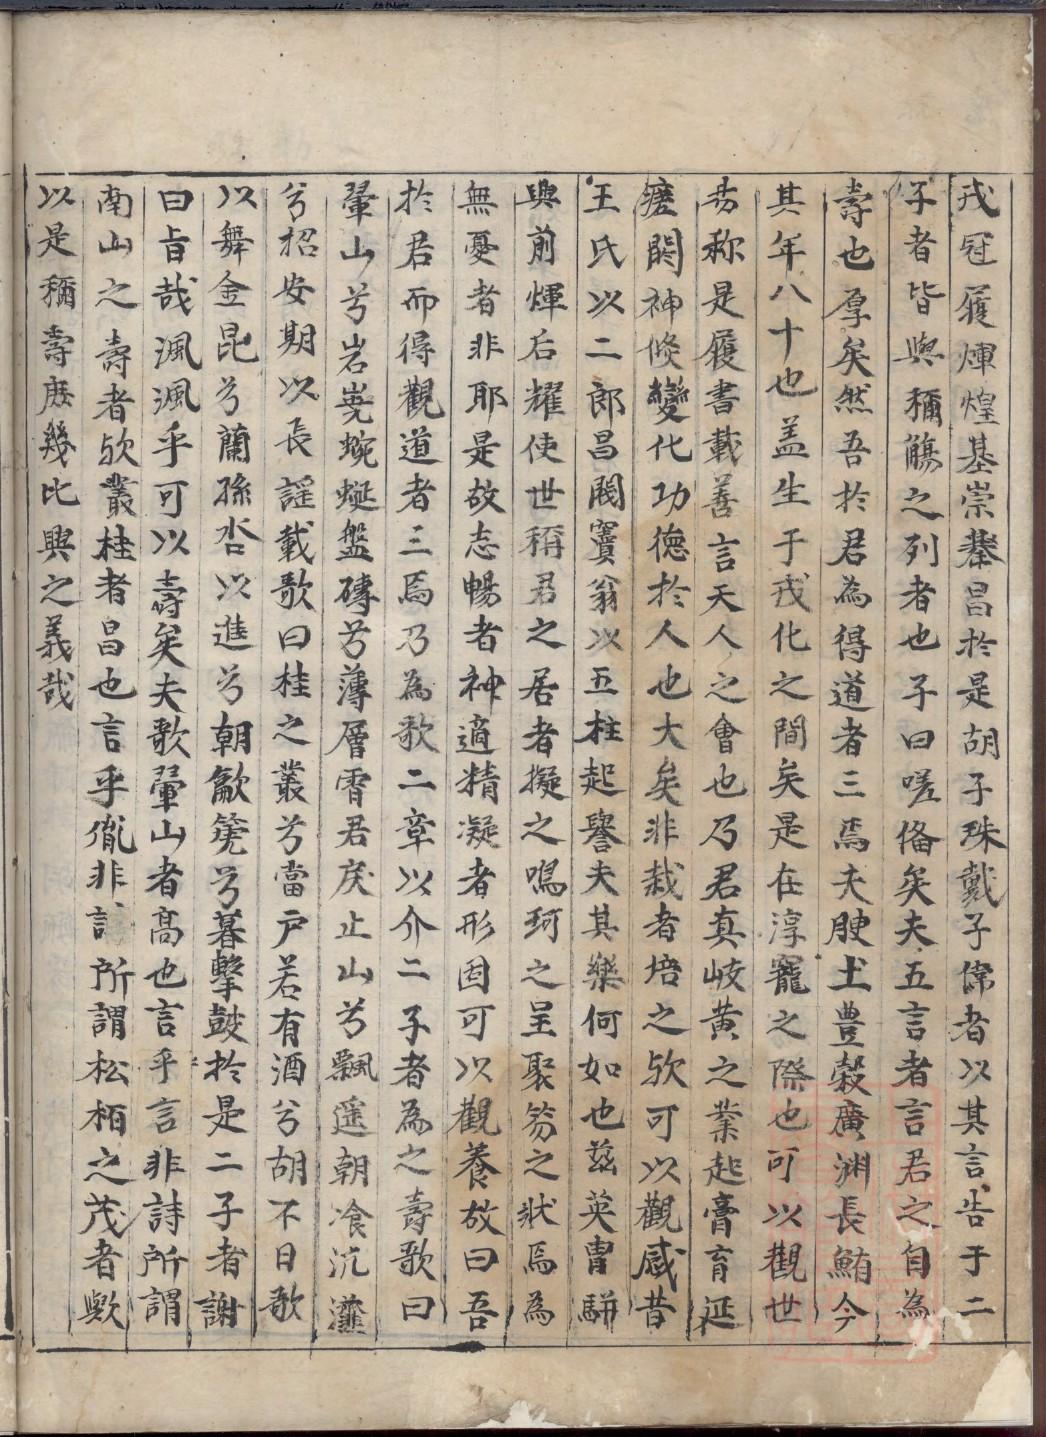 戎冠履煇煌基崇搴昌於是胡子珠戴子偉者以其言告于二
子者皆與稱觴之列者也子曰嗟俻矣夫五言者言君之自為
壽也厚矣然吾於君為得道者三焉夫腴土豊穀廣渊長鮪今
其年八十也盖生于戎化之間矣是在淳寵之際也可以觀世
昜称是履書載善言天人之會也乃君真岐黄之業起膏育延
瘥閼神倐變化功德於人也大矣非栽者培之欤可以觀感昔
王氏以二郎昌閥竇翁以五柱起譽夫其樂何如也兹英胄騈
與前煇后耀使世稱君之居者擬之鳴珂之呈聚笏之狀焉為
無憂者非耶是故志暢者神適精凝者形固可以觀養故曰吾
於君而得觀道者三焉乃為歌二章以介二子者為之壽歌曰
翬山兮岩嶤蜿蜒盤礴兮薄層霄君戾止山兮飄遥朝飡沆瀣
兮招安期以長謡載歌曰桂之叢兮當戶若有酒兮胡不日歌
以舞金昆兮蘭孫杏以進兮朝龡篪兮暮擊鼓於是二子者謝
曰旨哉渢渢乎可以壽矣夫歌翬山者高也言乎言非詩所謂
南山之壽者欤叢桂者昌也言乎胤非詩所謂松栢之茂者歟
以是稱壽庶幾比興之義哉